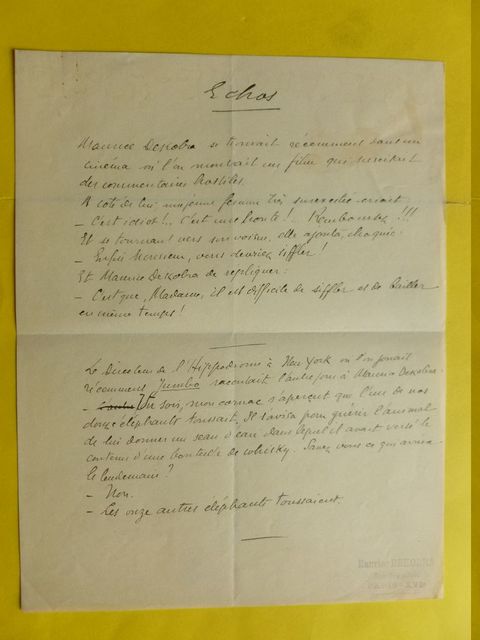 Echos
Maurice Dekobra se trouvait récemment dans un
cinéma où l'on montrait un film qui suscitait
des commentaires hostiles.
A côté de lui une jeune femme très surexcitée criait
- C'est idiot!.. C'est une honte!.. Remboursez!!!
Et se tournant vers son voisin, elle ajouta, choquée:
- Enfin Monsieur, vous devriez siffler!
Et Maurice Dekobra de répliquer:
- C'est que, Madame, il est difficile de siffler et de bailler
en même temps!
Le Directeur de l'Hippodrome à New York où l'on jouait
récemment Jumbo racontait l'autre jour à Maurice Dekobra
Un soir, mon cornac s'aperçut que l'un de nos
douze éléphants toussait. Il s'avisa pour guérir l'animal
de lui donner un seau d'eau dans lequel il avait versé le
contenu d'une bouteille de whisky. Savez vous ce qui arriva
le lendemain?
- Non.
- Les onze autres éléphants toussaient.
Maurice DEKOBRA
PARIS-XVIe